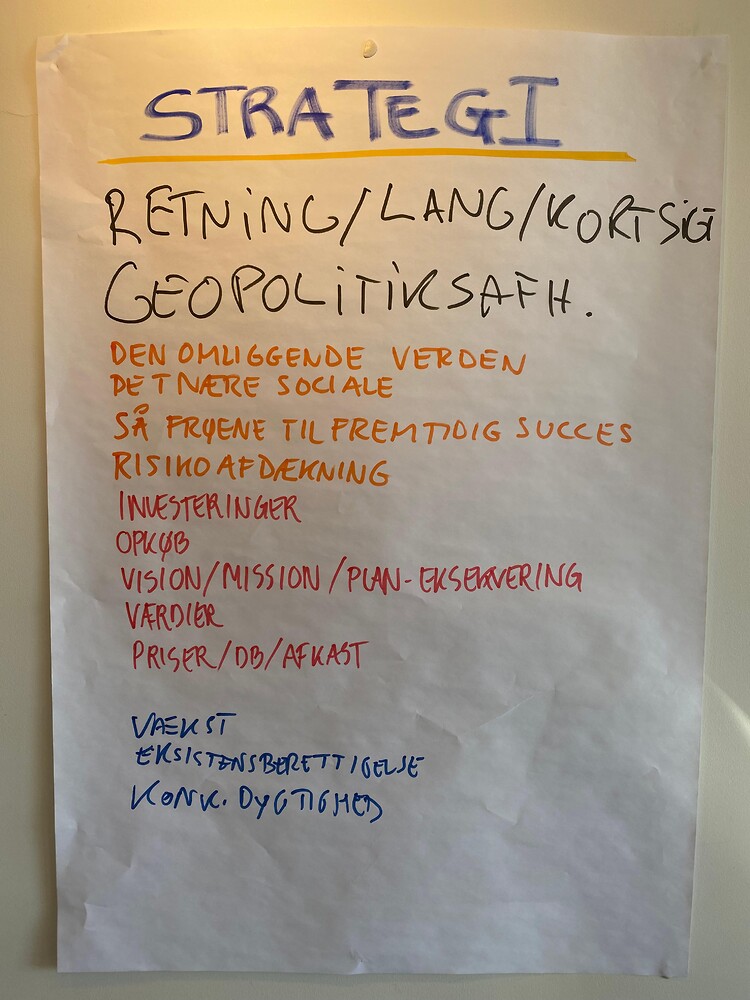 STRATEGI
RETNING/LANG/KORTSIGT
GEOPOLITIKSAFH.
DEN OMLIGGENDE VERDEN
DET NÆRE SOCIALE
SÅ FRØENE TIL FREMTIDIG SUCCES
RISIKOAFDÆKNING
INVESTERINGER
OPKØB
VISION/MISSION/PLAN-EKSEKVERING
VÆRDIER
PRISER/DB/AFKAST
VÆKST
EKSISTENSBERETTIGELSE
KONK. DYGTIGHED